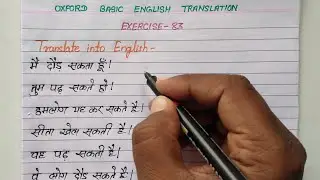 OXFORD BASIC ENGLISH TRANSLATION
EXERCISE-83
Translate into English-
मैं दौड़ सकता हूँ।
तुम पढ़ सकते हो।
हमलोग यह कर सकते हैं।
सीता खेल सकती है।
वह पढ़ सकता है।
वे लोग दौड़ सकते हैं।